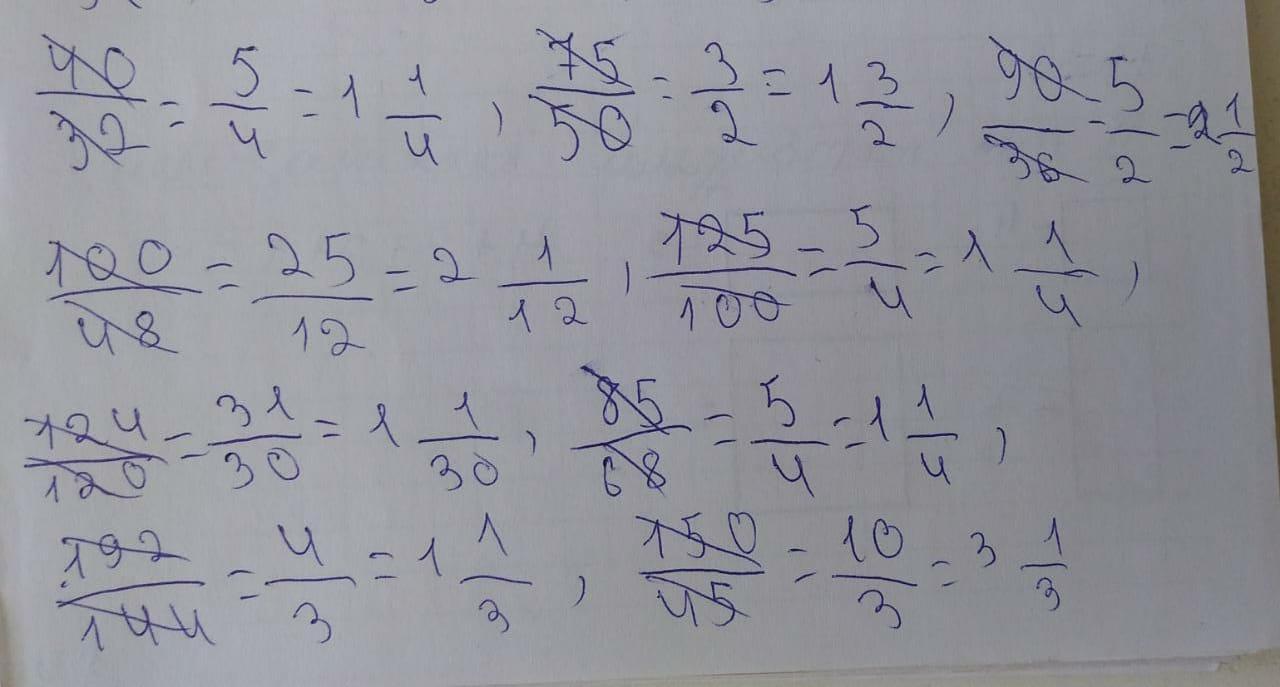 40/32 = 5/4 = 1 1/4 , 75/50 = 3/2 = 1 3/2 , 90/36 = 5/2 = 2 1/2
100/48 = 25/12 = 2 1/12 , 125/100 = 5/4 = 1 1/4 ,
124/120 = 31/30 = 1 1/30 , 85/68 = 5/4 = 1 1/4 ,
192/144 = 4/3 = 1 1/3 , 150/45 = 10/3 = 3 1/3